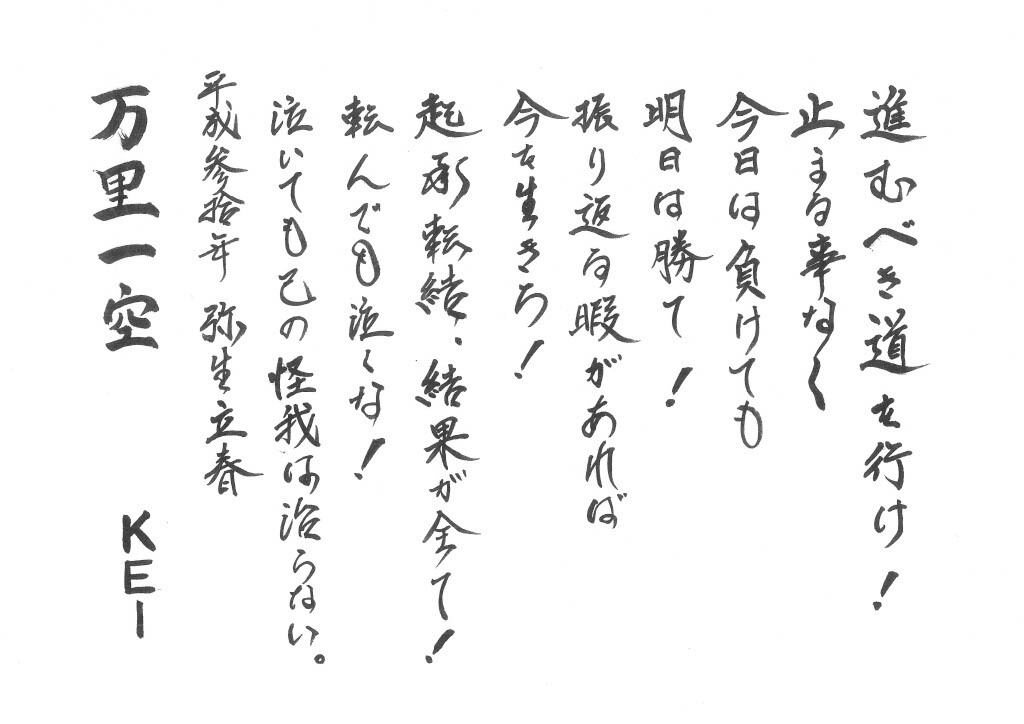 進むべき道を行け!
止まる事なく
今日は負けても
明日は勝て!
振り返る暇があれば
今を生きろ!
起承転結、結果が全て!
転んでも泣くな!
泣いても己の怪我は治らない。
平成参拾年 弥生立春
万里一空 KEI